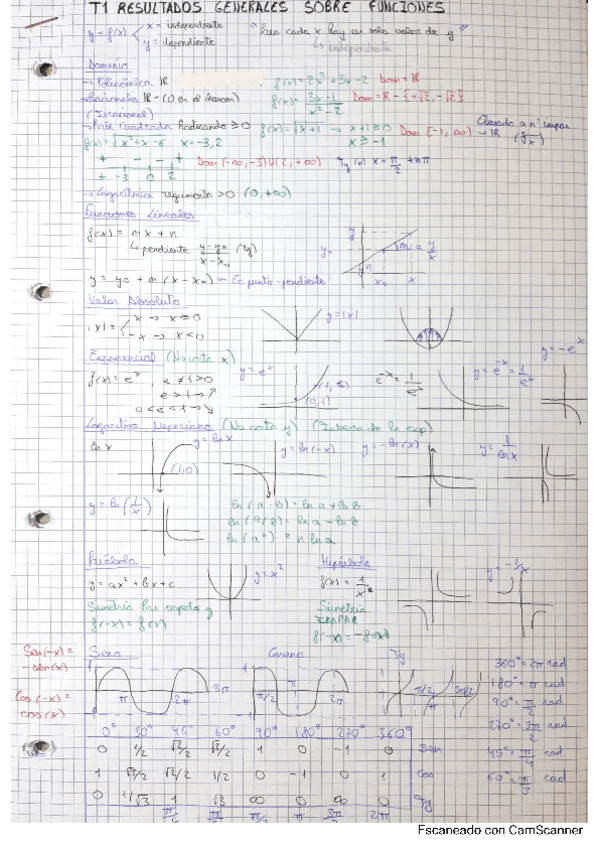 T1 RESULTADOS GENERALES SOBRE FUNCIONES
y = f(x) x = independiente
y = dependiente
"Para cada x hay un solo valor de y"
↳ independiente
Dominio
→ Polinómica ℝ f(x) = 2x² + 3x - 2 Dom = ℝ
→ Racionales ℝ - (0 en el denom) f(x) = 3x-1/x²-2 Dom = ℝ - {+√2, -√2}
(Irracional)
→ Raíz Cuadrada Radicando ≥ 0 f(x) = √x+1 → x+1 ≥ 0 Dom [-1, ∞) → ℝ
x ≥ -1
f(x) = √x²+x-6 x = -3, 2
+ - - +
-3 0 2
Dom (-∞, -3) U (2, +∞) Tg (x) x = π/2 + nπ
→ Logarítmica argumento > 0 (0, +∞)
Funciones Lineales
f(x) = mx + n
↳ pendiente y-y₀/x-x₀ (Tg)
y
y₀
m = y/x
n
x₀ x
y = y₀ + m (x - x₀) → Ec punto-pendiente
Valor Absoluto
|x| = x → x ≥ 0
-x → x < 0
y = |x|
Exponencial (No corta x)
f(x) = eˣ
y = eˣ
(0,1)
e⁻ˣ = 1/eˣ
y = e⁻ˣ = 1/eˣ
y = -eˣ
Logaritmo Neperiano (No corta y) (Inversa de la exp)
ln x
y = ln x
(1,0)
y = ln(-x)
y = -ln(x)
y = 1/ln x
y = ln (1/x)
ln (a·B) = ln a + ln B
ln (a/B) = ln a - ln B
ln (aⁿ) = n ln a
Parábola
Hipérbola
y = ax² + bx + c
y = x²
y = -1/x
Simetría Par respecto y
f(-x) = f(x)
Simetría
IMPAR
f(-x) = -f(x)
Sen(-x) = -sen(x)
Cos(-x) = cos(x)
Seno
Coseno
Tg
1
π
2π
3π
-1
1
π/2
π
2π
-1
π/2
3π/2
360° = 2π rad
180° = π rad
90° = π/2 rad
270° = 3π/2 rad
45° = π/4 rad
60° = π/3 rad
0° 30° 45° 60° 90° 180° 270° 360°
0 1/2 √2/2 √3/2 1 0 -1 0 Sen
1 √3/2 √2/2 1/2 0 -1 0 1 Cos
0 1/√3 1 √3 ∞ 0 ∞ 0 Tg
Escaneado con CamScanner